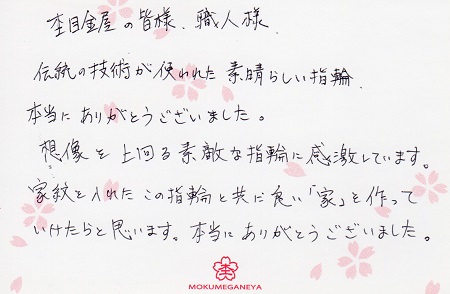 杢目金屋の皆様、職人様
伝統の技術が使われた素晴らしい指輪、
本当にありがとうございました。
想像を上回る素敵な指輪に感激しています。
家紋を入れたこの指輪と共に良い「家」を作って
いけたらと思います。本当にありがとうございました。
MOKUMEGANEYA